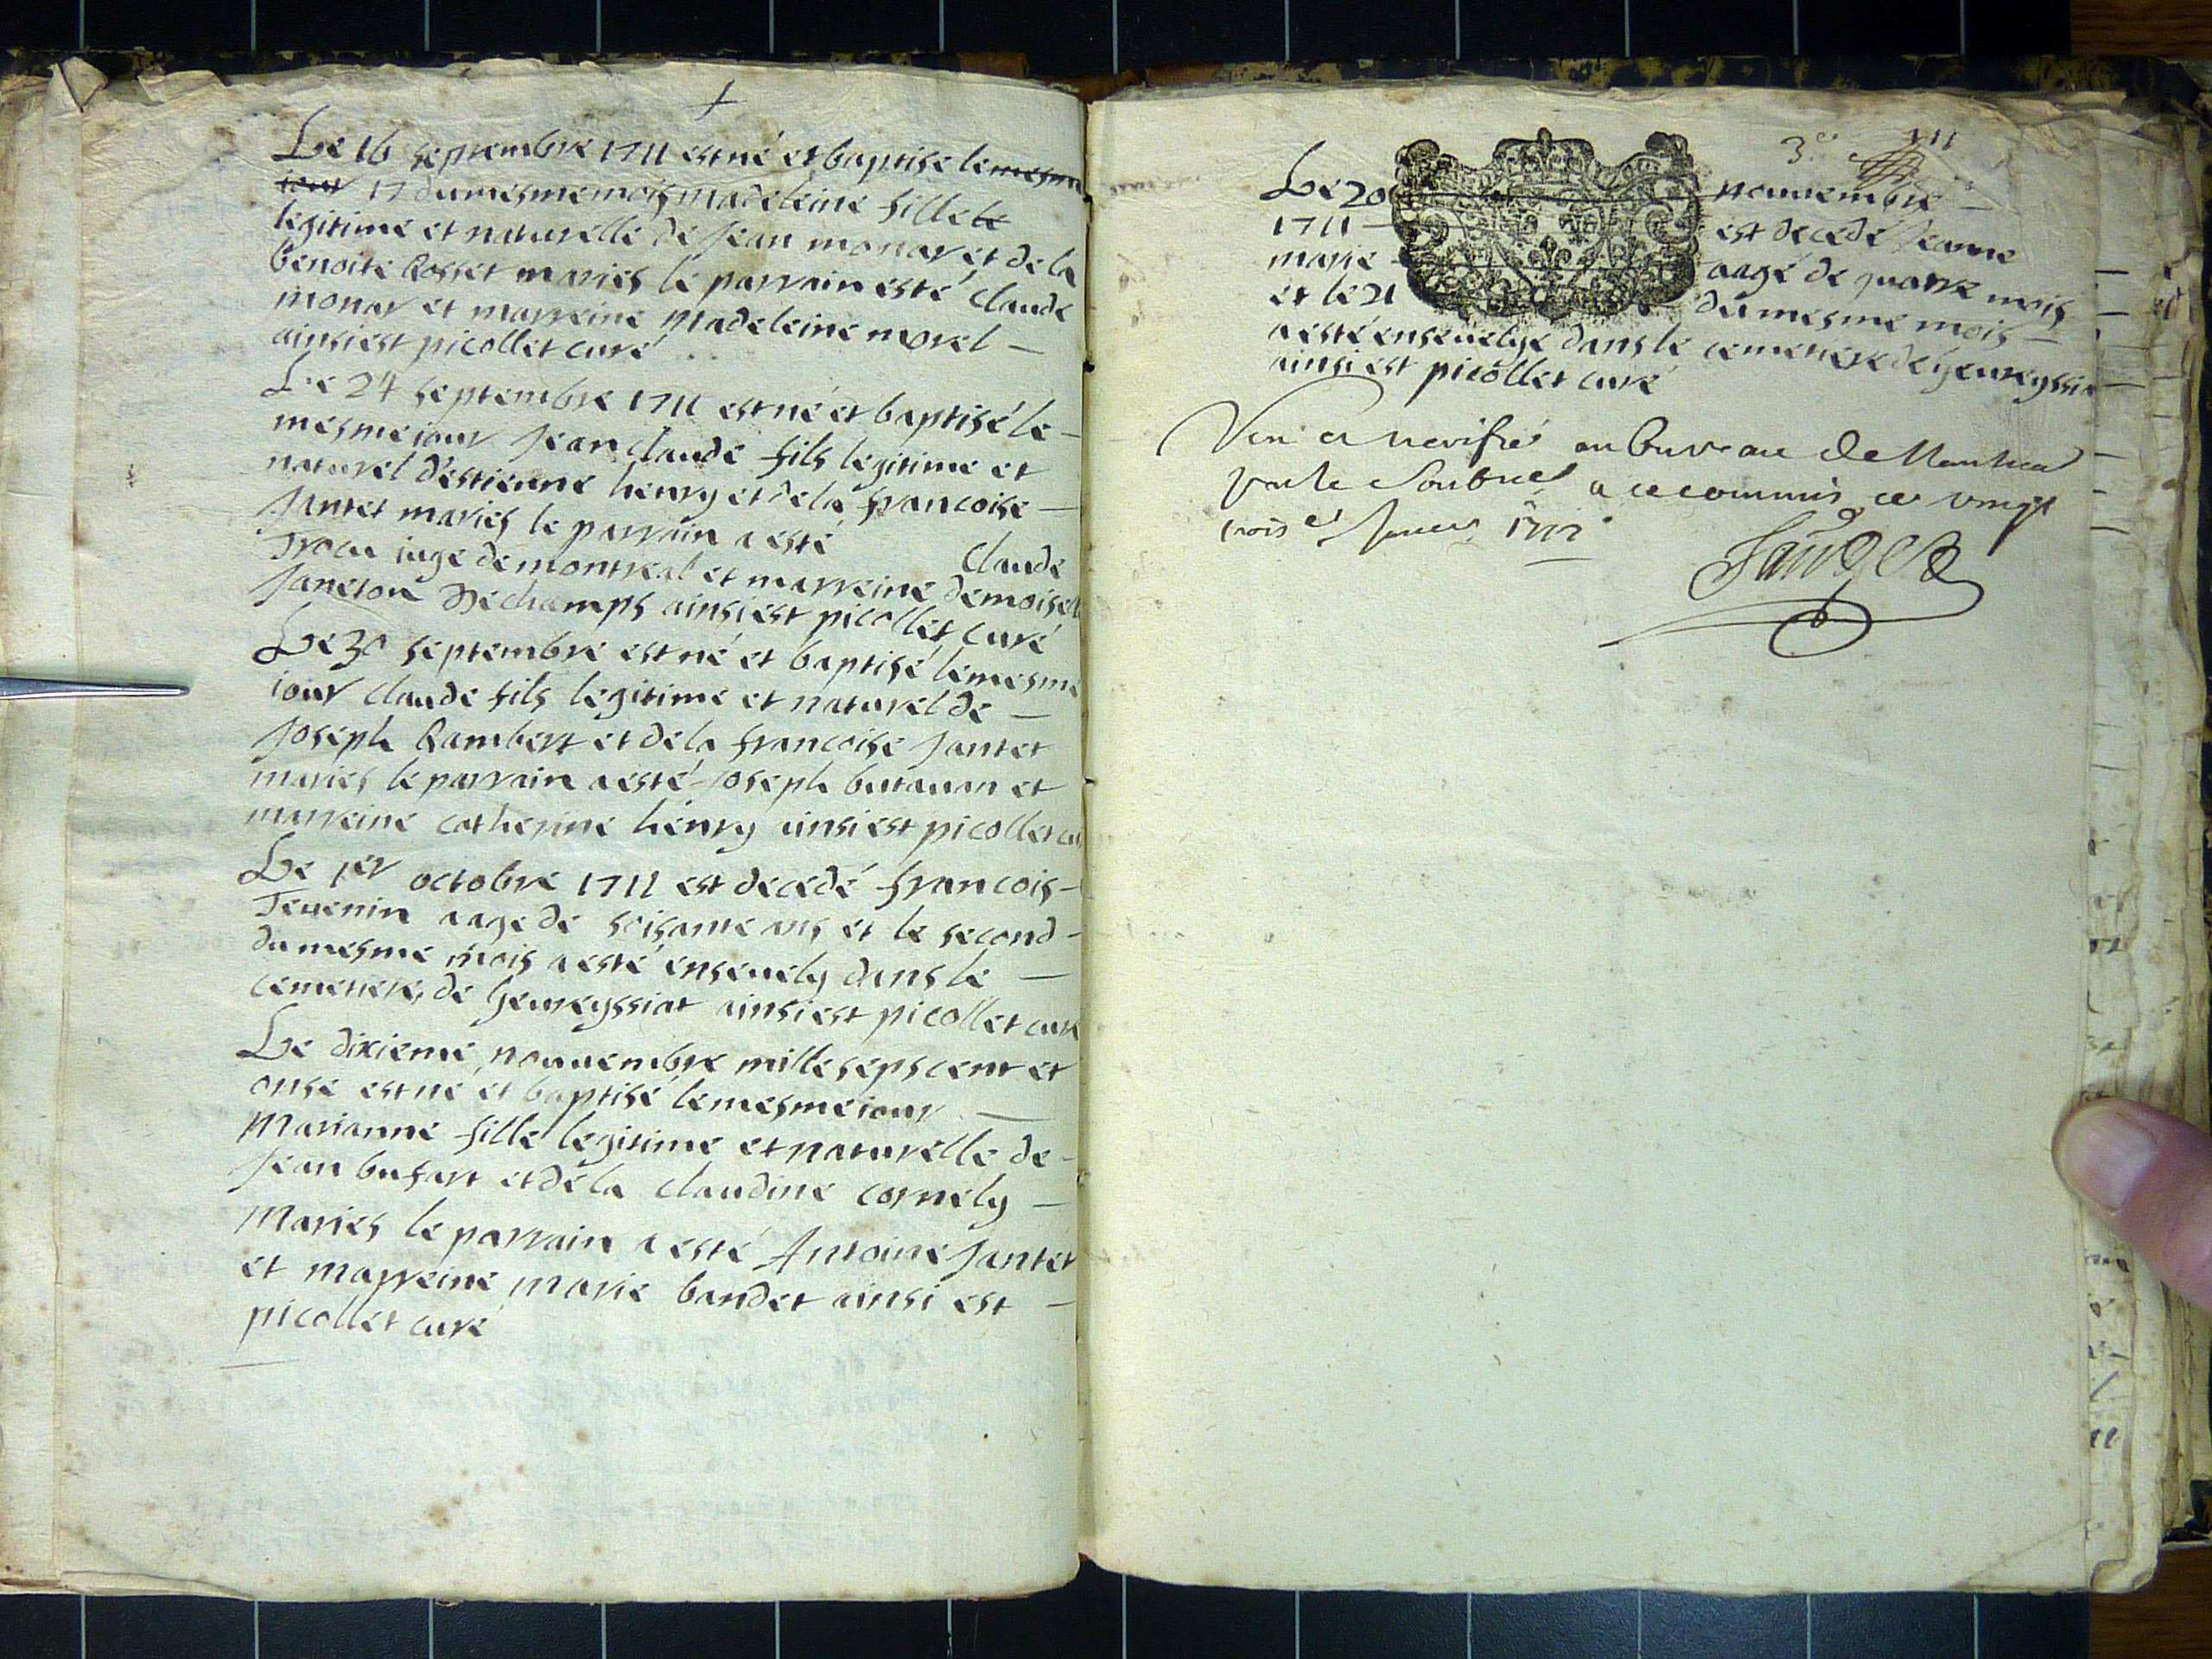 Le 16 septembre 1711 est né et baptise le mesme
iour 17 du mesme mois madeleine fille le
legitime et naturelle de Jean monar et de la
benoite Rosset maries le parrain esté claude
monar et marreine madeleine morel —
ainsi est picollet curé
Le 24 septembre 1711 est né et baptisé le —
mesme iour Jean claude fils legitime et
naturel d'estienne henry et de la francoise —
Jantet maries le parrain a esté claude
iuge de montreal et marreine demoiselle
Janeton Dechamps ainsi est picollet curé
Le 30 septembre est né et baptisé le mesme
iour claude fils legitime et naturel de —
Joseph Rambert et de la francoise Jantet
maries le parrain a esté Joseph butauan et
marreine catherine henry ainsi est picollet cu
Le 1er octobre 1711 est decedé francois —
Teuenin aage de soisante ans et le second —
du mesme mois a esté enseuely dans le —
cemetiere de geureyssiat ainsi est picollet curé
Le dixieme nouuembre mille sepscent et
onse est né et baptisé le mesme iour —
Marianne fille legitime et naturelle de —
Jean bufart et de la claudine cornely —
Maries le parrain a esté Antoine Jantet
et marreine marie bandet ainsi est —
picollet curé
3e
111
Le 20 nouuembre —
1711 — est decedé Jeanne
marie aagé de quatre mois
et le 21 du mesme mois —
a esté enseuelye dans le cemetiere de geureyssia
ainsi est picollet curé
Veu et verifié au bureau de
par le Soubne a ce commis ce vingt
trois e 1712